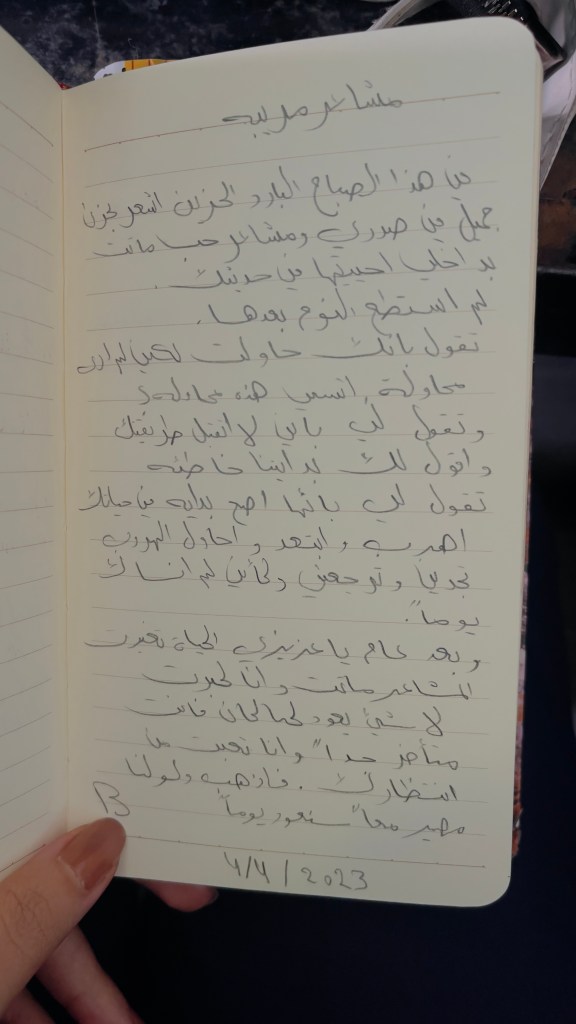 مشاعر مريبه
في هذا الصباح البارد الحزين اشعر بحزن
جميل في صدري ومشاعر حب ماتت
بداخلي احييتها في حديثك .
لم استطع النوم بعدها .
تقول بانك حاولت لكني لم ارى
محاولة , اتسمي هذه محاولة؟
وتقول لي باني لا اتقبل طريقتك
واقول لك بدايتنا خاطئه
تقول لي بانها اصح بدايه في حياتك
اهرب و ابتعد و احاول الهروب
تجدني وترجعني وكأني لم انساك
يوماً.
وبعد عام يا عزيزي الحياة تغيرت
المشاعر ماتت وانا كبرت
لا شيئ يعود كما كان فانت
متأخر جداً وانا تعبت من
انتظارك . فاذهب ولو لنا
مصير معاً سنعود يوماً
B
4/4/2023